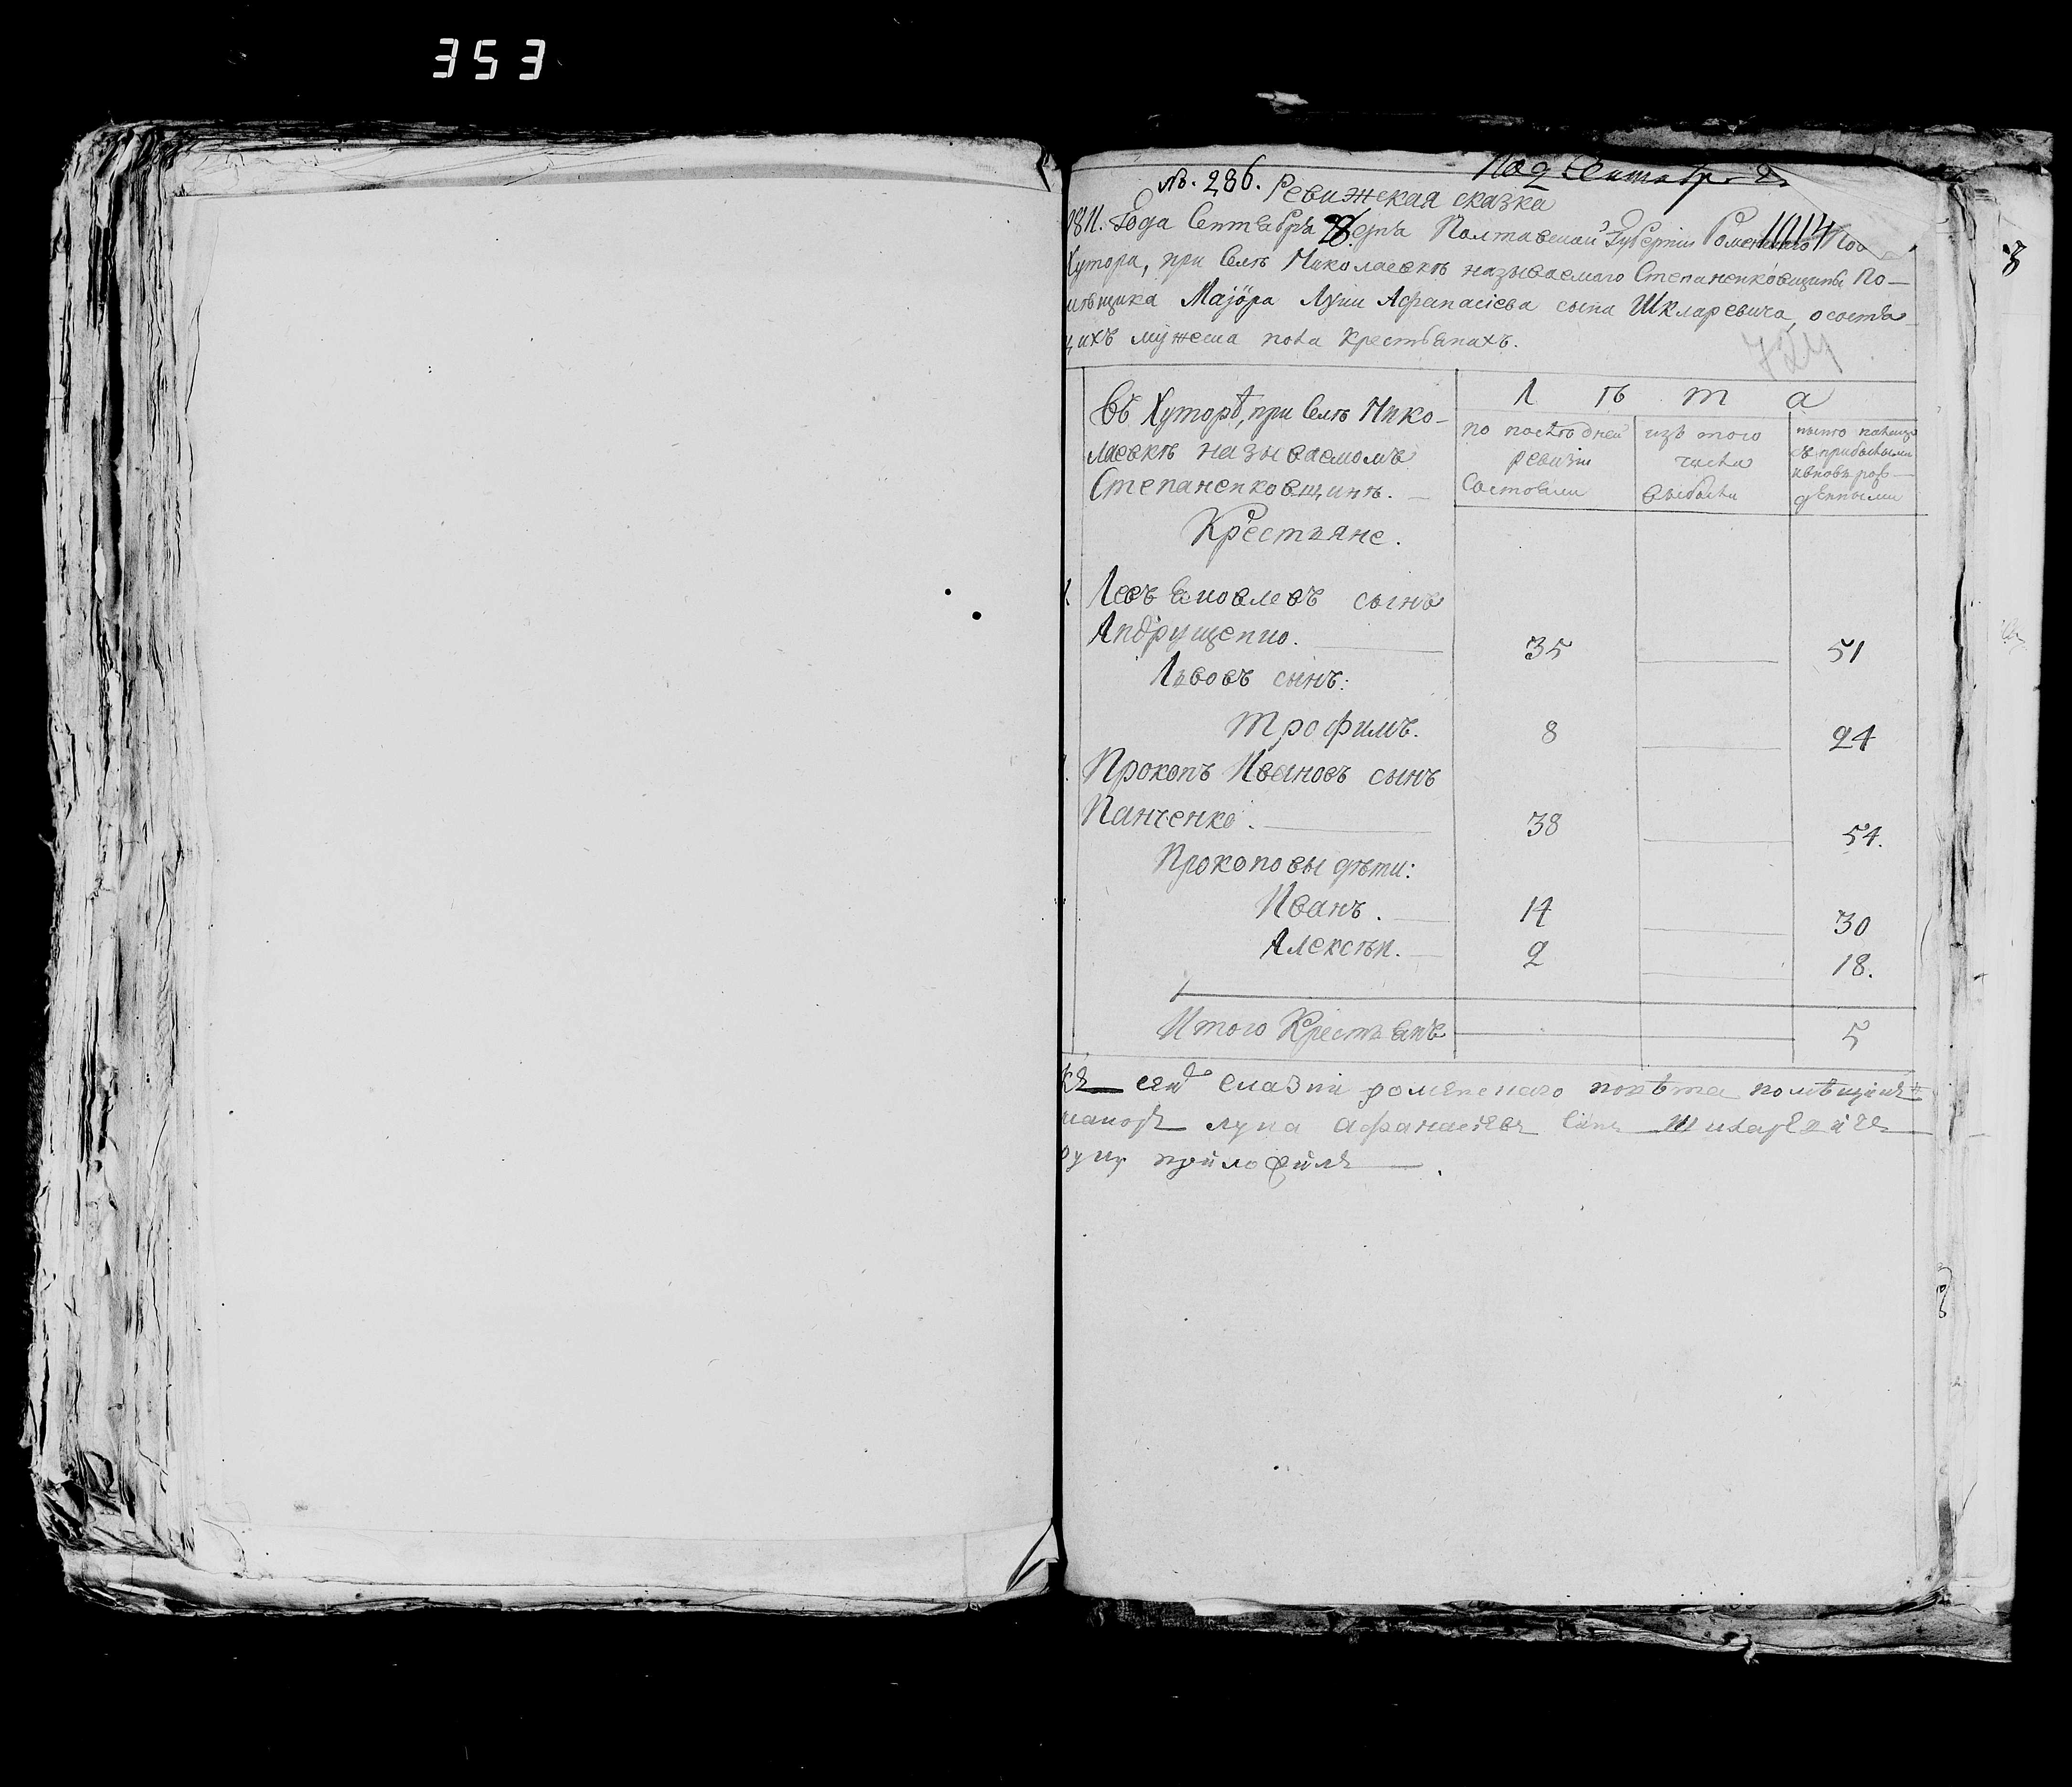 353
№. 286. Ревижская сказка
1811. Года Сентября дня Полтавской Губернiи Роменского По
Хутора, при Селѣ Николаевкѣ называемаго Степаненковщины По-
мѣщика Маiора Лупи Афанасiева сына Шкларевича, о состоя
щихъ мужеска пола крестьянахъ.
1014
724
Въ Хуторѣ, при Селѣ Нико-
лаевкѣ называемомъ
Степаненковщинѣ.
Лѣта
по послѣдней ревизiи состояли
изъ того числа выбыли
нынѣ налицо съ прибылыми и вновь рожденными
Крестьяне.
Левъ Яковлевъ сынъ
Андрущенко. 35 51
Львовъ сынъ:
Трофимъ. 8 24
Прокопъ Ивановъ сынъ
Панченко. 38 54.
Прокоповы дѣти:
Иванъ. 14 30
Алексѣй. 2 18.
Итого Крестьянъ 5
Къ сей сказки роменскаго повѣта помѣщикъ
маиоръ лупа афанасiевъ синъ Шкларевичъ
руку приложилъ.